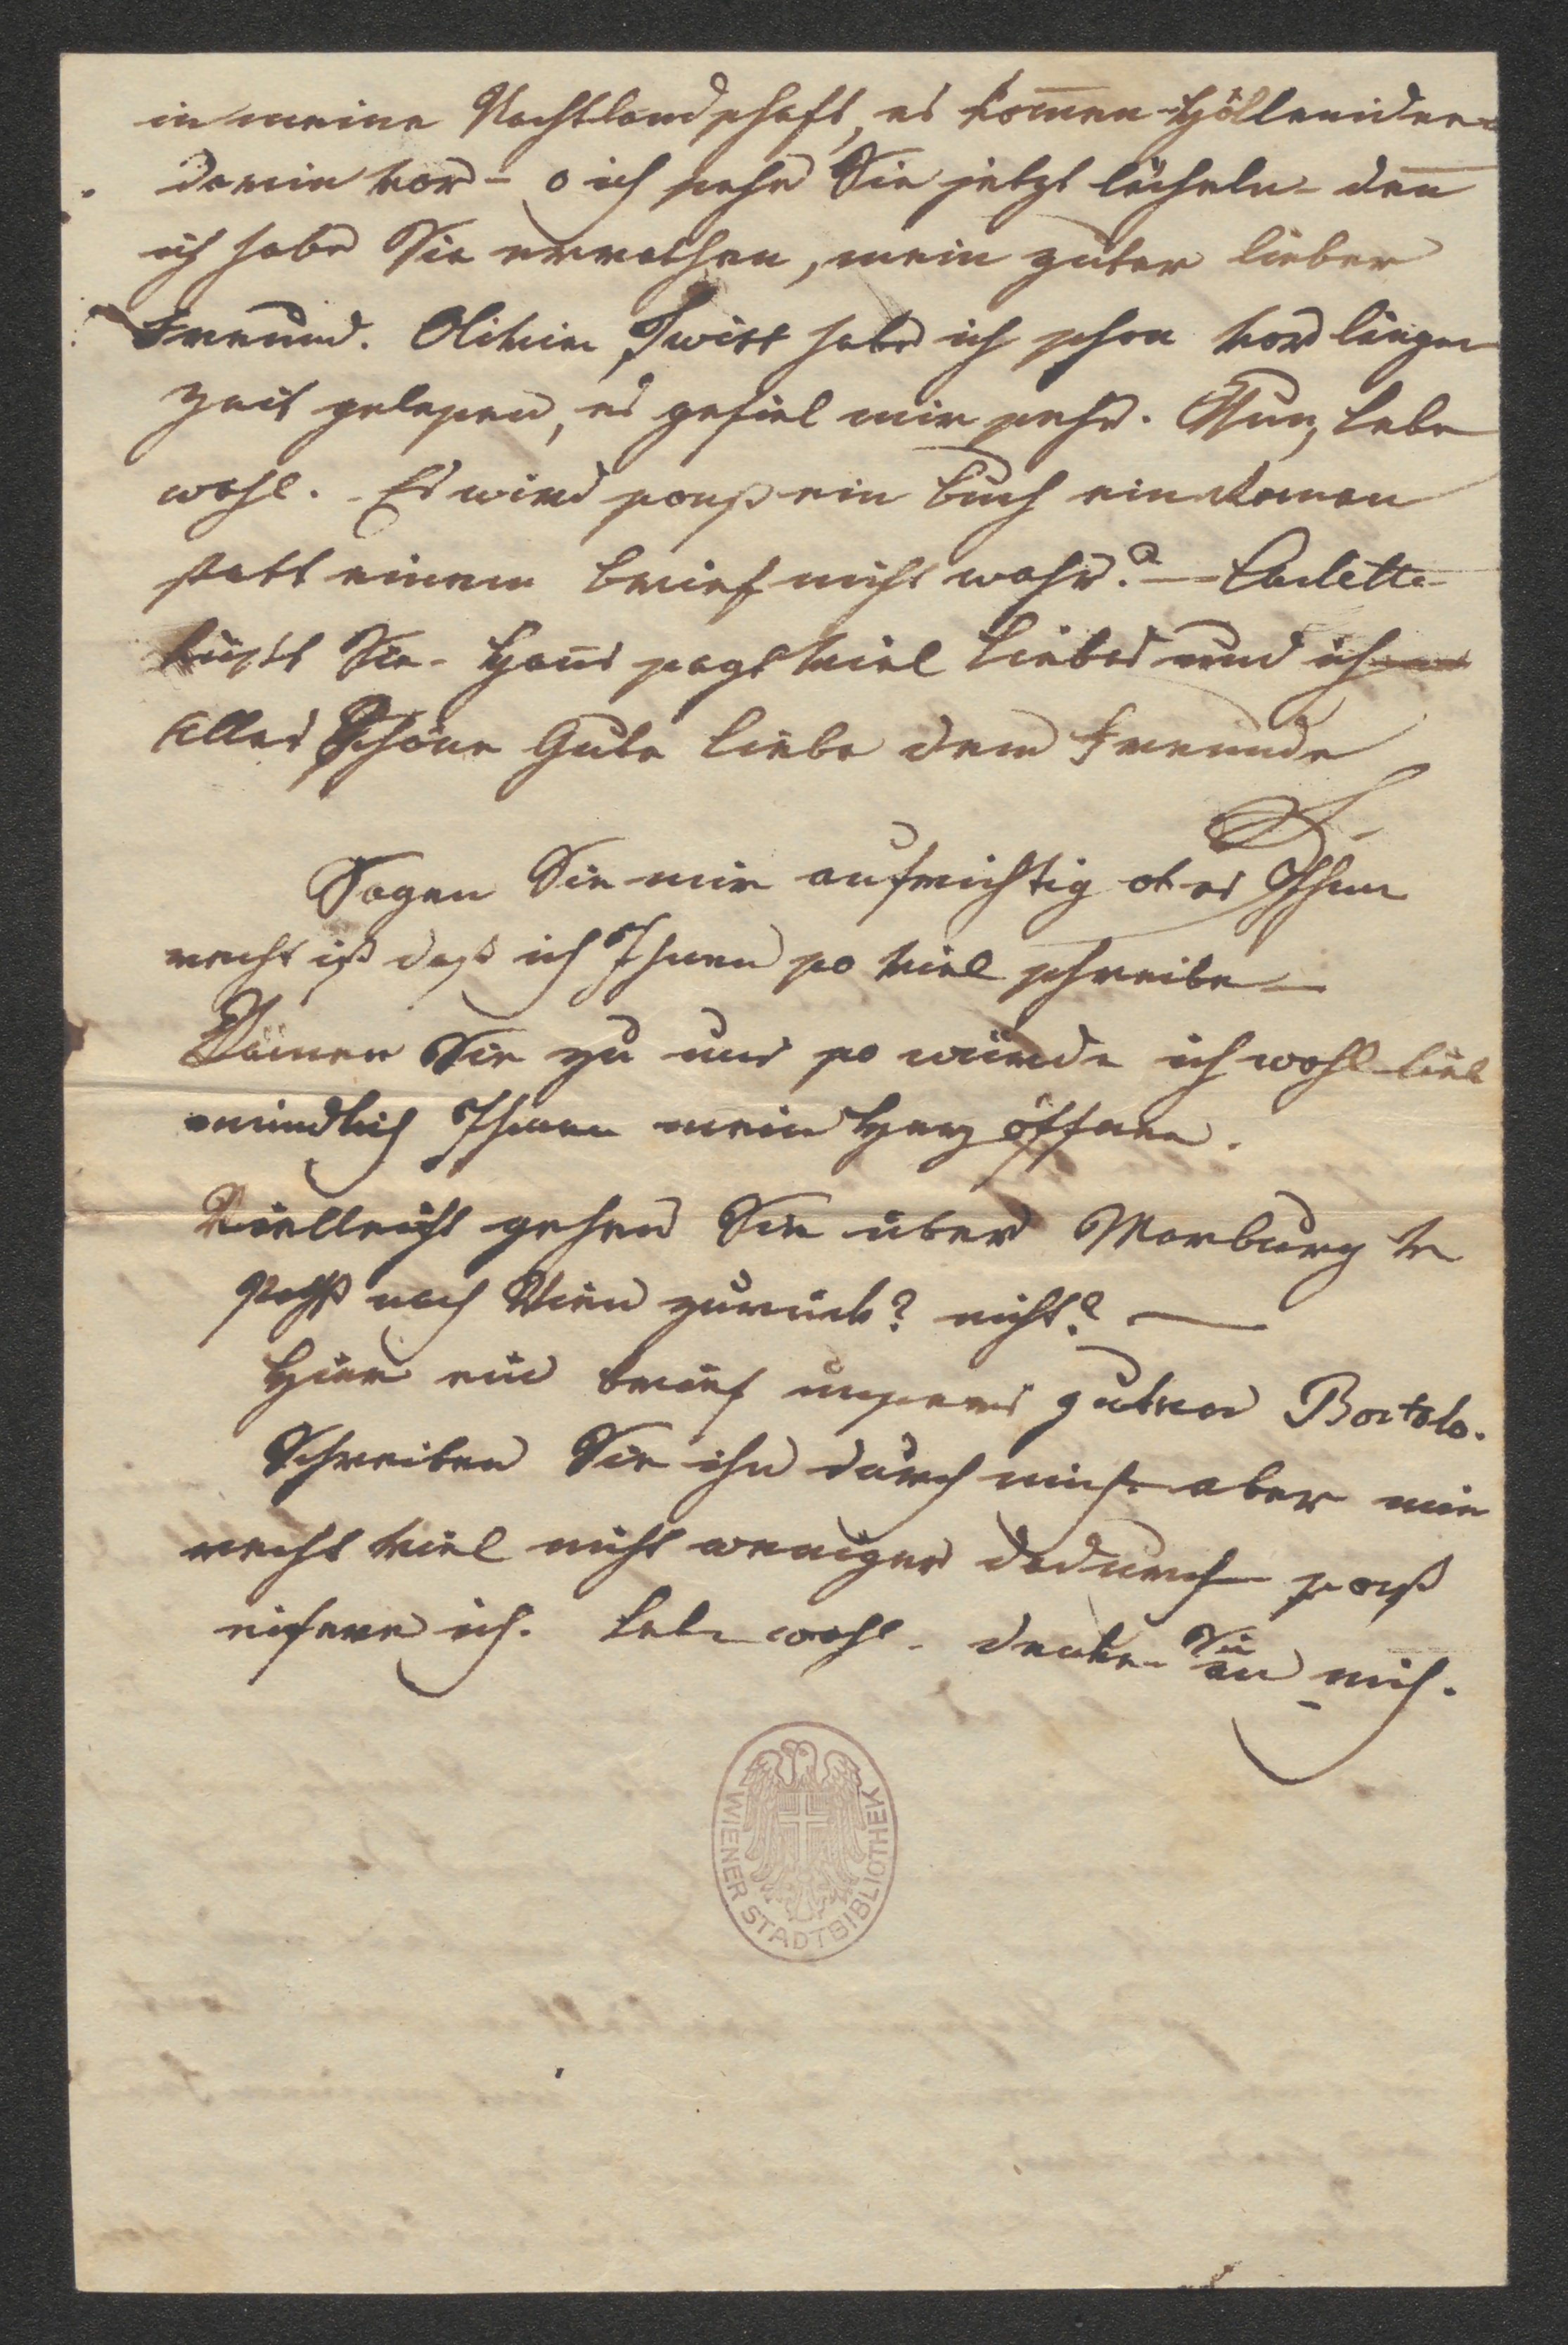 in meine Nachtlandschaft, es kom̅en Höllenideen
darin vor – o ich sehe Sie jetzt lächeln – den̅
ich habe Sie errathen, mein guter lieber
Freund. Olivier Twist habe ich schon vor länger
Zeit gelesen, es gefiel mir sehr. Nun, lebe
wohl. – Es wird sonst ein Buch ein Roman
statt einem Brief nicht wahr? –
küßt Sie – Hans sagt viel Liebes und ich
alles Schöne Gute Liebe dem Freunde
Sagen Sie mir aufrichtig ob es Ihnen
recht ist daß ich Ihnen so viel schreibe –
Kämen Sie zu uns so würde ich wohl viel
mündlich Ihnen mein Herz öffnen.
Vielleicht gehen Sie über Marburg
nach Wien zurück? nicht? —
Hier ein Brief unseres guten Bartolo.
Schreiben Sie ihn durch mich aber mir
recht viel nicht weniger dadurch sonst
eifere ich. Lebe wohl – denken Sie an mich.
WIENER STADTBIBLIOTHEK